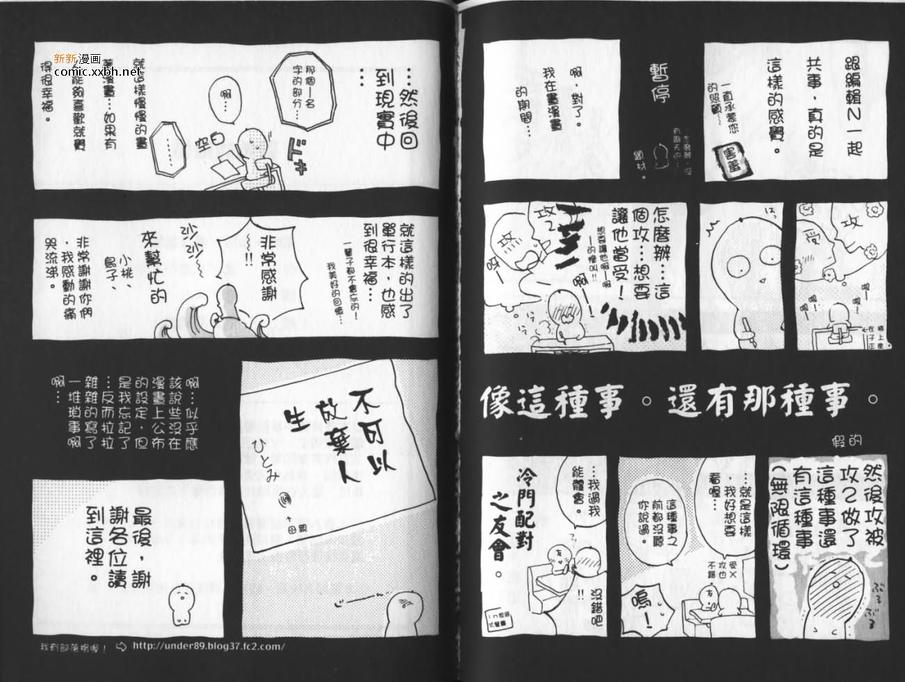 跟編輯N一起
共事，真的是
這樣的感覺。
一直承蒙您
的照顧…
害羞
暫停
啊，對了。
我在畫漫畫
的期間…
攻
受
啊—
啊—
怎麼辦…這
個攻…想要
讓他當受！
想要讓他啊—啊—
的慘叫!!
啊—
攻2
攻
像這種事。還有那種事。
假的
然後攻被
攻2做了
這種事還
有這種事
(無限循環)
ぷるぷる
…就是這樣
，我好想要
看喔…
這種事之
前都沒聽
你說過。
受×
攻也
不錯
嗚！
…我過我
能體會。
沒錯吧
!!
冷門配對
之友會。
…然後回
到現實中
…
那個！名
字的部分…
啊…
空白
ドキ
……
就這樣慢慢的畫
著漫畫…如果有
人能夠喜歡就覺
得很幸福。
就這樣的出了
單行本，也感
到很幸福…
一輩子都不會忘的！
我美好的回憶…
非常感謝
—!!
沙沙—
沙—
來幫忙的
小桃、
島子、
非常謝謝你們
，我感動的痛
哭流涕。
不可以
放棄人
生
ひとみ
啊…似乎應
該說些沒在
漫畫上公布
的設定，但
是我忘記了
…反而拉拉
雜雜的寫了
一堆瑣事啊
啊…
最後，謝
謝各位讀
到這裡。
http://under89.blog37.fc2.com/
新新漫画
comic.xxbh.net